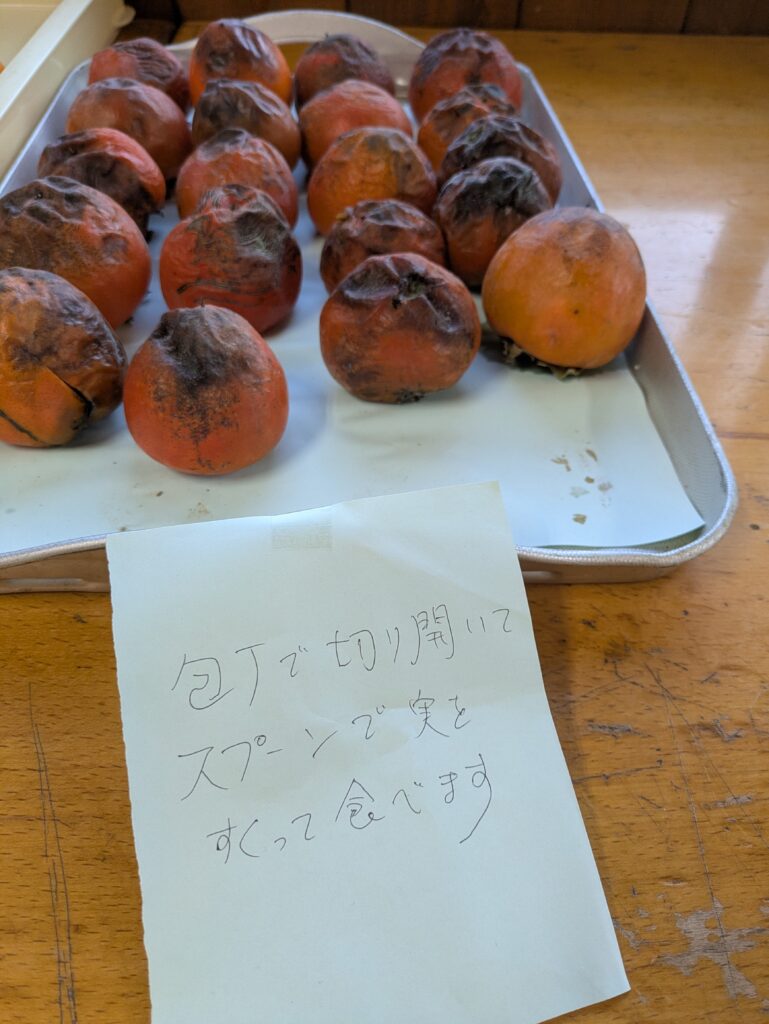 包丁で切り開いて
スプーンで実を
すくって食べます